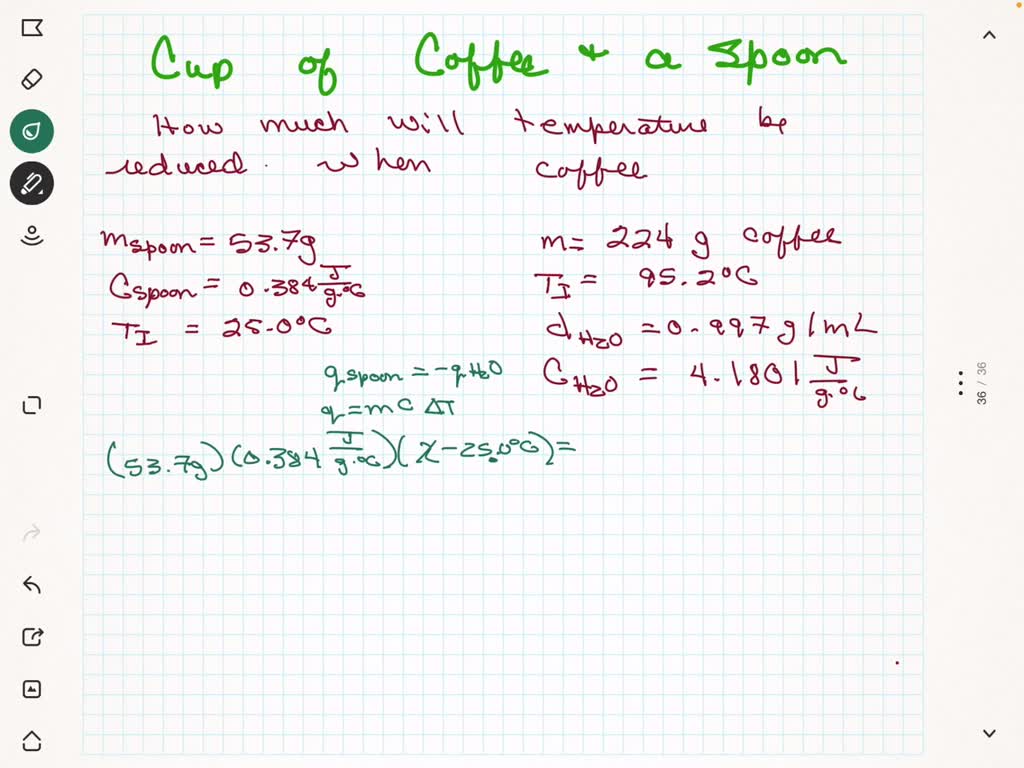 Cup of Coffee + a Spoon
How much will temperature be
reduced. when coffee
mspoon = 53.7g
Cspoon = 0.384 J/g.°C
TI = 25.0°C
m= 224 g coffee
TI = 95.2°C
dH2O = 0.997 g/mL
CH2O = 4.1801 J/g.°C
qspoon = -qH2O
q = mCΔT
(53.7g)(0.384 J/g.°C)(x-25.0°C)=
36 / 36